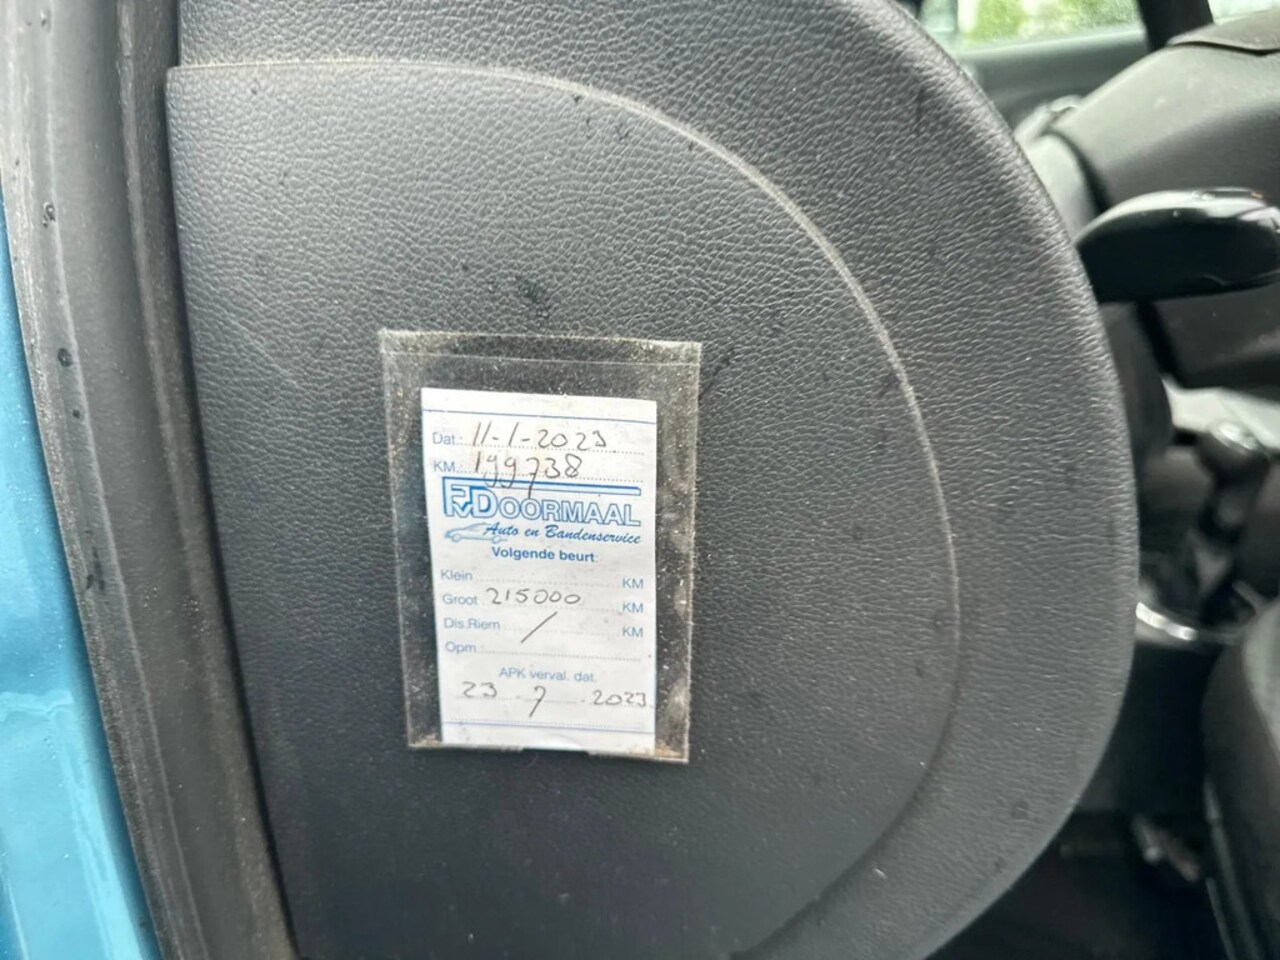 Dat.: 11-1-2023
KM.: 199738
PVDOORMAAL
Auto en Bandenservice
Volgende beurt:
Klein KM
Groot 215000 KM
Dis.Riem / KM
Opm.:
APK verval. dat.
23 . 7 . 2023